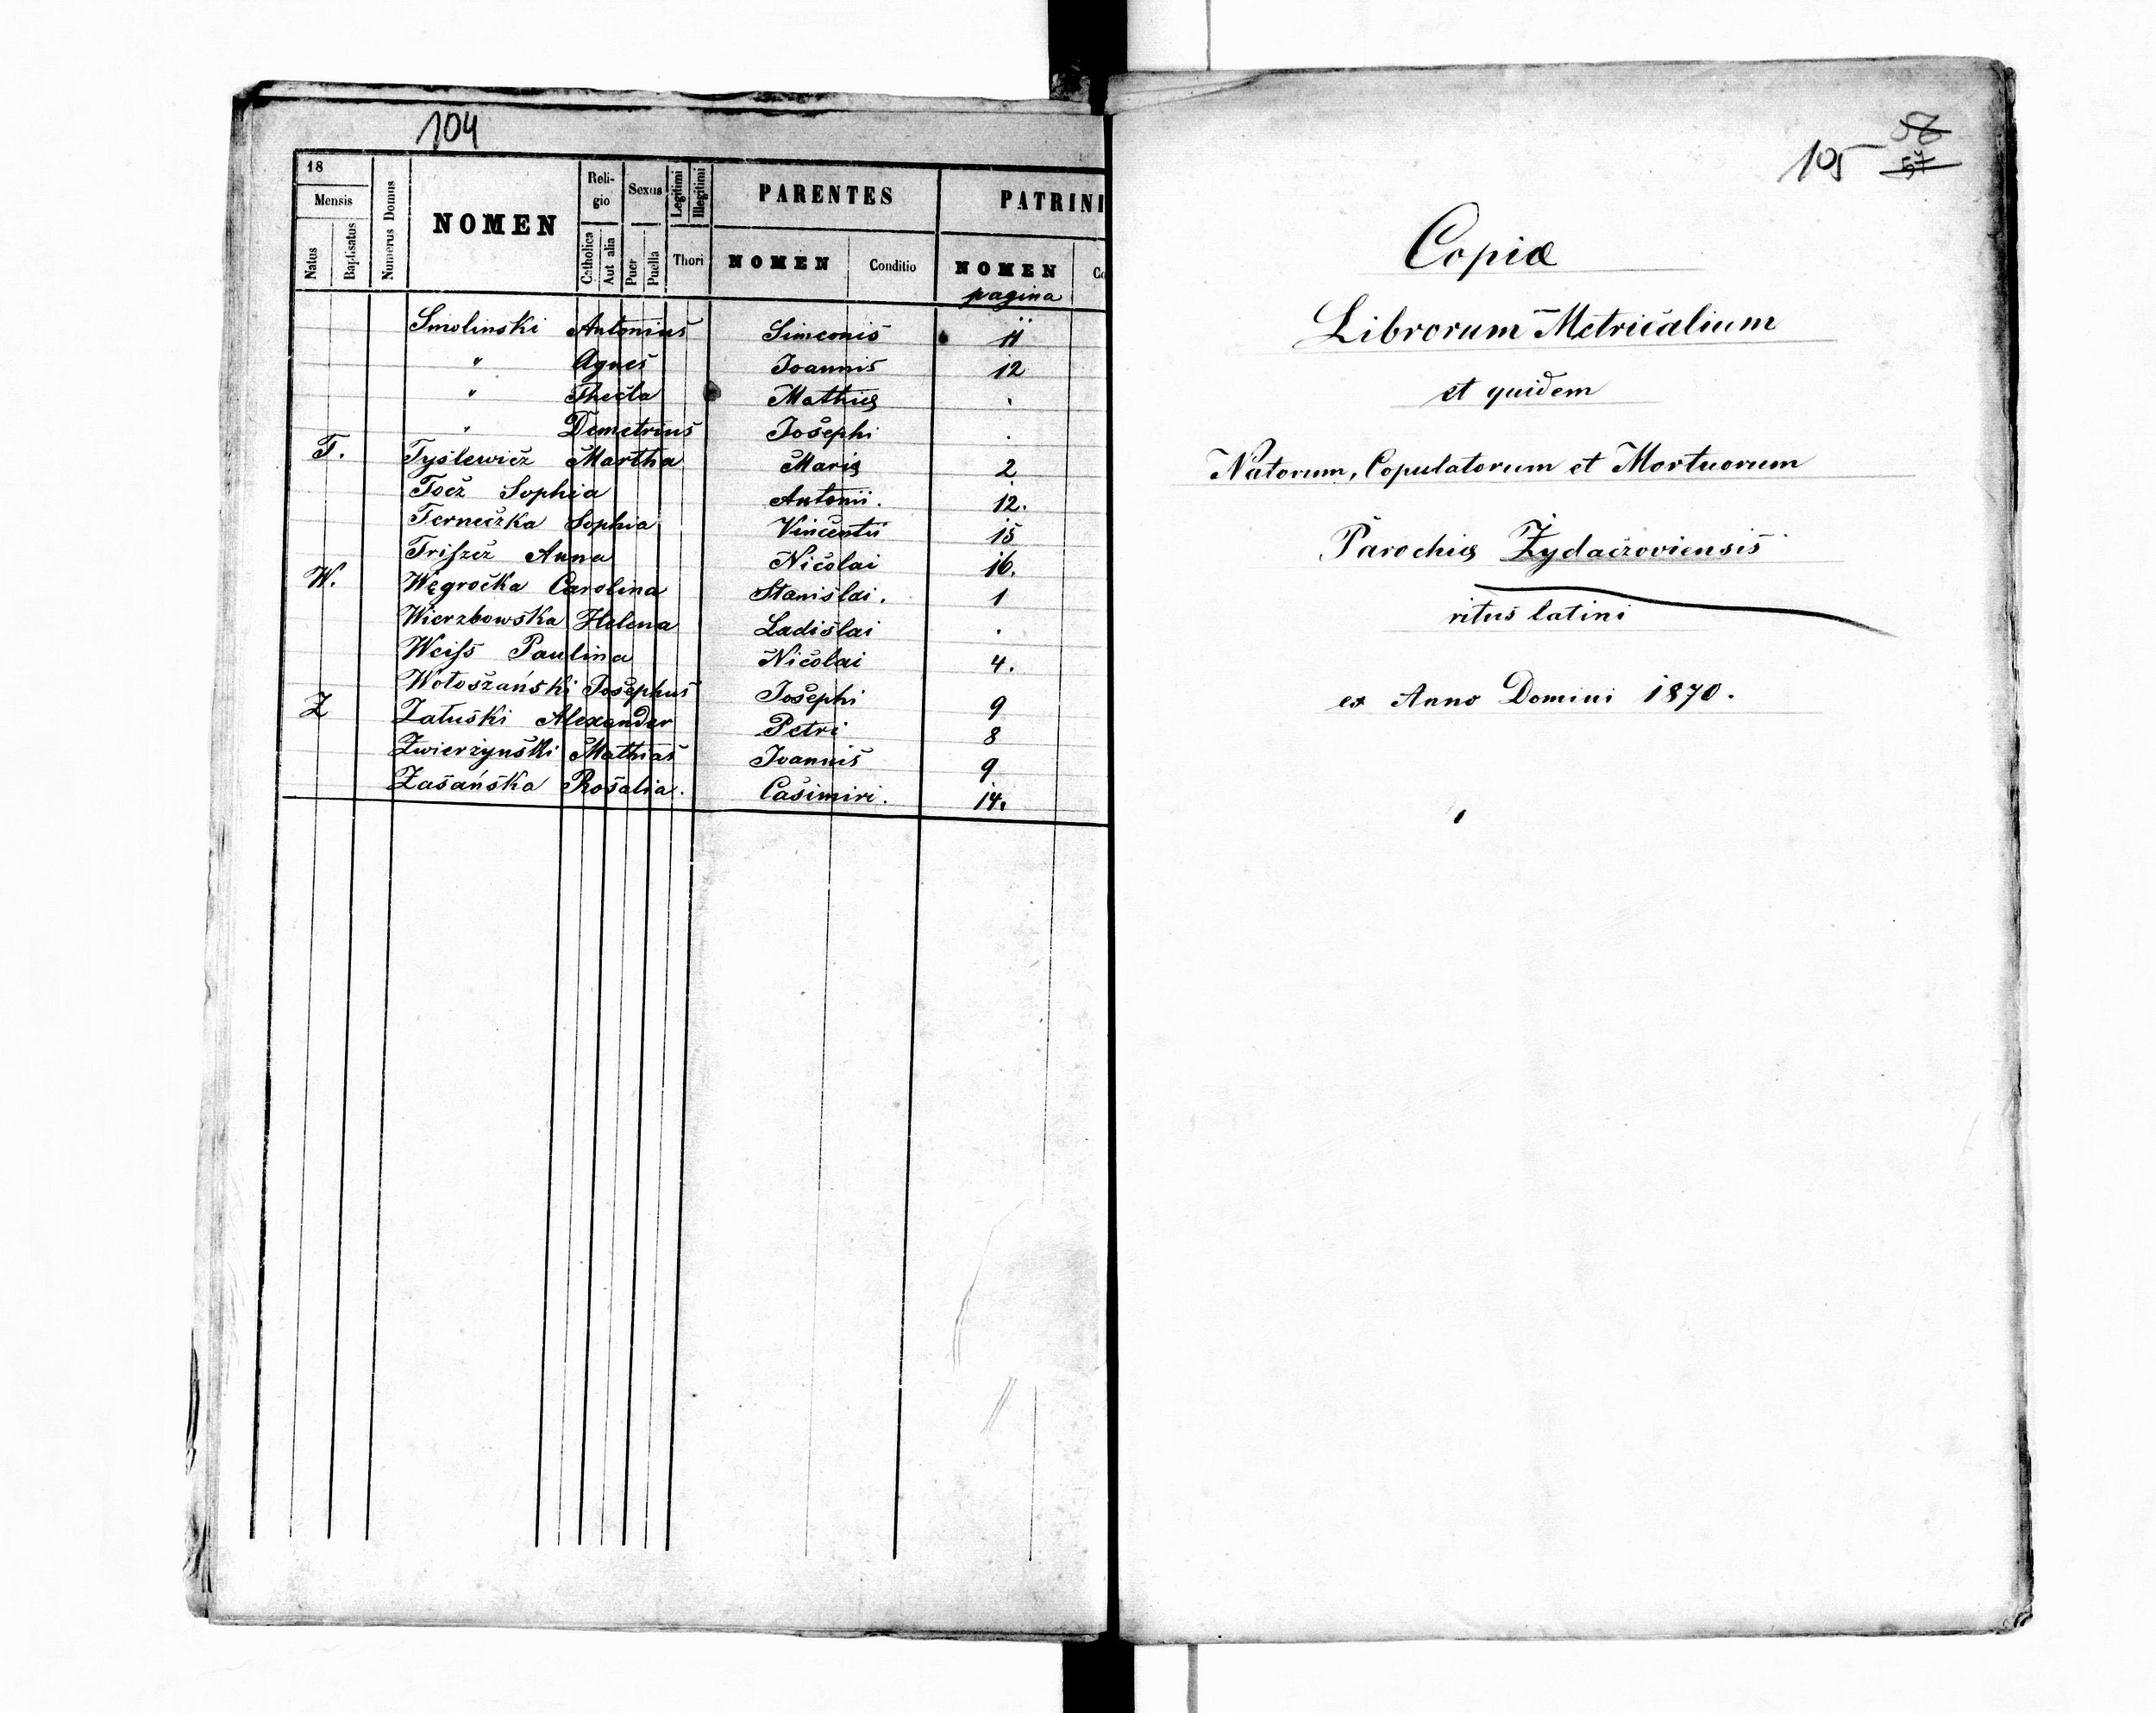 104
18
Mensis
Natus
Baptisatus
Numerus Domus
NOMEN
Reli-
gio
Catholica
Aut alia
Sexus
Puer
Puella
Legitimi
Illegitimi
Thori
PARENTES
NOMEN
Conditio
PATRINI
NOMEN
Co
pagina
Smolinski Antonius Simeonis 11
" Agnes Joannis 12
" Thecla Mathiæ .
" Demetrius Josephi .
T. Tyslewicz Martha Mariæ 2
Tocz Sophia Antonii. 12.
Terneczka Sophia Vincentii 15
Triszcz Anna Nicolai 16.
W. Węgrocka Carolina Stanislai. 1
Wierzbowska Helena Ladislai .
Weiss Paulina Nicolai 4.
Wołoszański Josephus Josephi 9
Z Załuski Alexander Petri 8
Zwierżynski Mathias Joannis 9
Zasańska Rosalia. Casimiri. 14.
105
Copiæ
Librorum Metricalium
et quidem
Natorum, Copulatorum et Mortuorum
Parochiæ Żydaczoviensis
ritus latini
ex Anno Domini 1870.